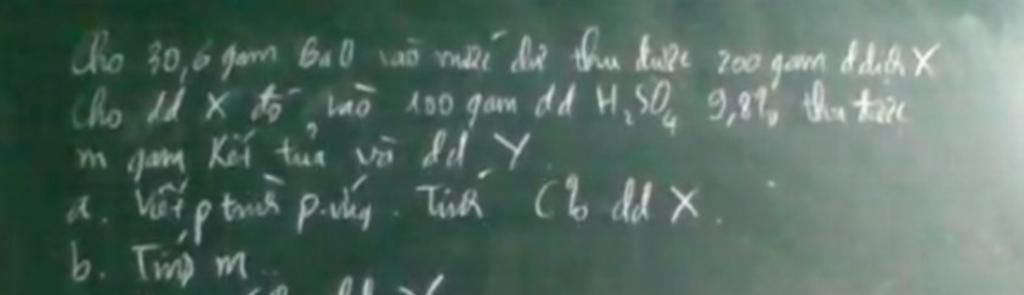 Cho 30,6 gam BaO vào nước dư thu được 200 gam ddịch X
Cho dd X đó vào 100 gam dd H₂SO₄ 9,8% thu được
m gam kết tủa và dd Y
a. Viết ptrình p.ứng. Tính C% dd X.
b. Tính m
dd Y